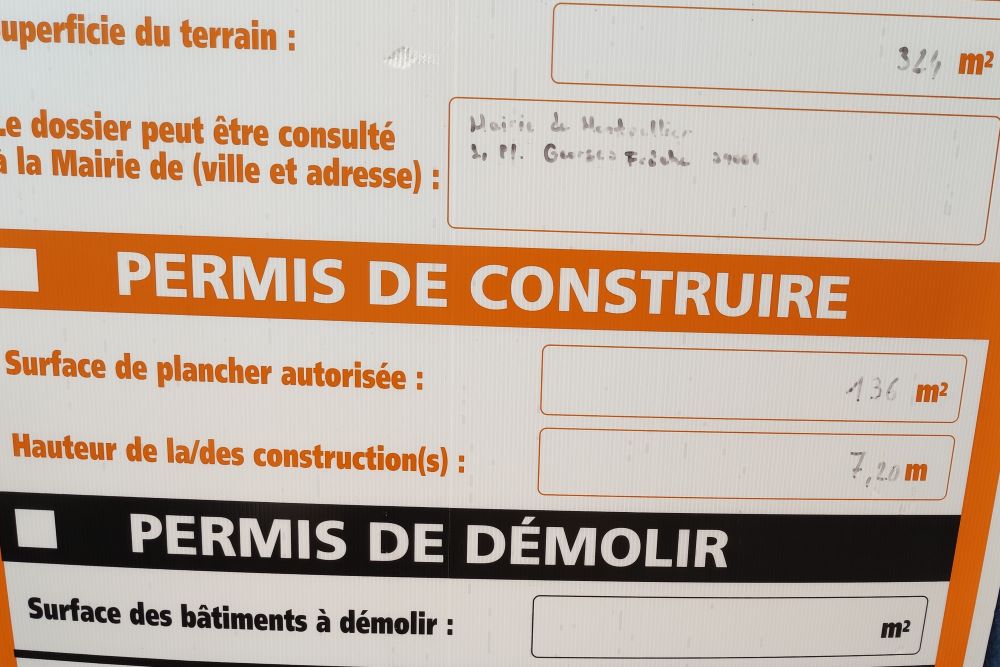 uperficie du terrain :
324 m²
Le dossier peut être consulté
à la Mairie de (ville et adresse) :
Mairie de Montpellier
1, Pl. Georges Frêche
PERMIS DE CONSTRUIRE
Surface de plancher autorisée :
136 m²
Hauteur de la/des construction(s) :
7,20 m
PERMIS DE DÉMOLIR
Surface des bâtiments à démolir :
m²